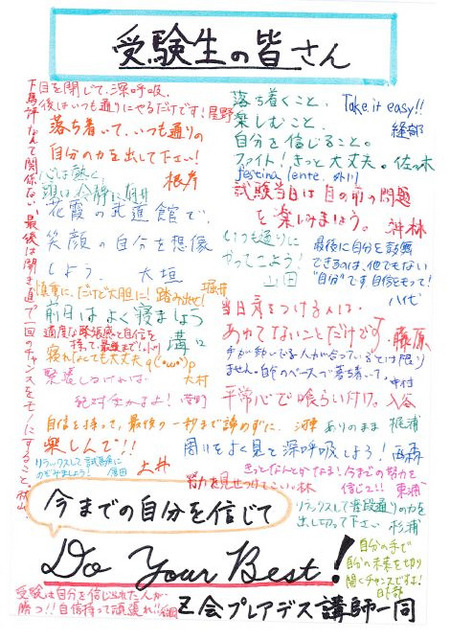 受験生の皆さん
目を閉じて、深呼吸。
後はいつも通りにやるだけです！星野
落ち着いて、いつも通りの
自分の力を出して下さい！
根岸
心は熱く、
頭は冷静に
花霞の武道館で、
笑顔の自分を想像
しよう。 大垣
慎重に、だけど大胆に！踏み出せ！
前日はよく寝ましょう
適度な緊張感と自信を
溝口
寝れなくても大丈夫
大村
自信を持って、最後の一秒まで諦めずに、
楽しんで！！
土井
リラックスして試験場に
下馬評なんて関係ない。最後は開き直って一回のチャンスをモノにすること。
落ち着くこと、
楽しむこと、
自分を信じること。
ファイト！きっと大丈夫。佐々木
Take it easy!!
festina lente.
試験当日は目の前の問題
を楽しみましょう。
いつも通りに
やってこよう！
山田
最後に自分を鼓舞
できるのは、他でもない
"自分"です自信をもって！
当日気をつける人は、
あわてないことだけです。藤原
平常心で喰らい付け。入谷
ありのまま 梶浦
周りをよく見て深呼吸しよう！西森
きっとなんとかなる！今までの努力を
信じて！！
努力を見せつけてこい。林
リラックスして普段通りの力を
出し切って下さい 杉浦
今までの自分を信じて
Do Your Best!
自分の手で
自分の未来を切り
開くチャンスですよ！
受験は自分を信じられた人が
勝つ！！自信持って頑張れ！！
Z会プレアデス講師一同